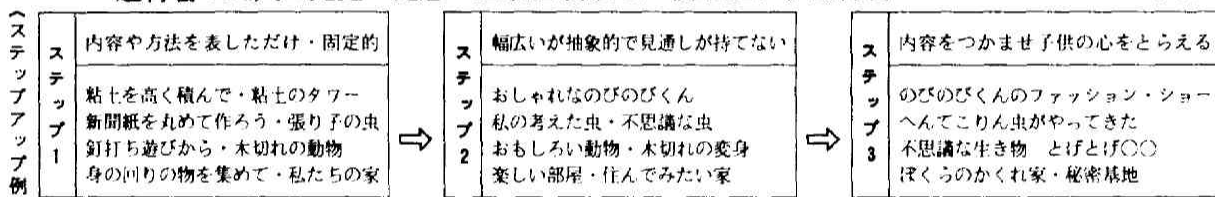 〈ステップアップ例
ステップ1
内容や方法を表しただけ・固定的
粘土を高く積んで・粘土のタワー
新聞紙を丸めて作ろう・張り子の虫
釘打ち遊びから・木切れの動物
身の回りの物を集めて・私たちの家
⇨
ステップ2
幅広いが抽象的で見通しが持てない
おしゃれなのびのびくん
私の考えた虫・不思議な虫
おもしろい動物・木切れの変身
楽しい部屋・住んでみたい家
⇨
ステップ3
内容をつかませ子供の心をとらえる
のびのびくんのファッション・ショー
へんてこりん虫がやってきた
不思議な生き物 とげとげ○○
ぼくらのかくれ家・秘密基地